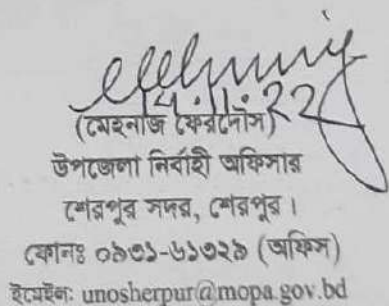 ১৫.১১.২২
(মেহনাজ ফেরদৌস)
উপজেলা নির্বাহী অফিসার
শেরপুর সদর, শেরপুর।
ফোনঃ ০৯৩১-৬১৩২৯ (অফিস)
ইমেইল: unosherpur@mopa.gov.bd